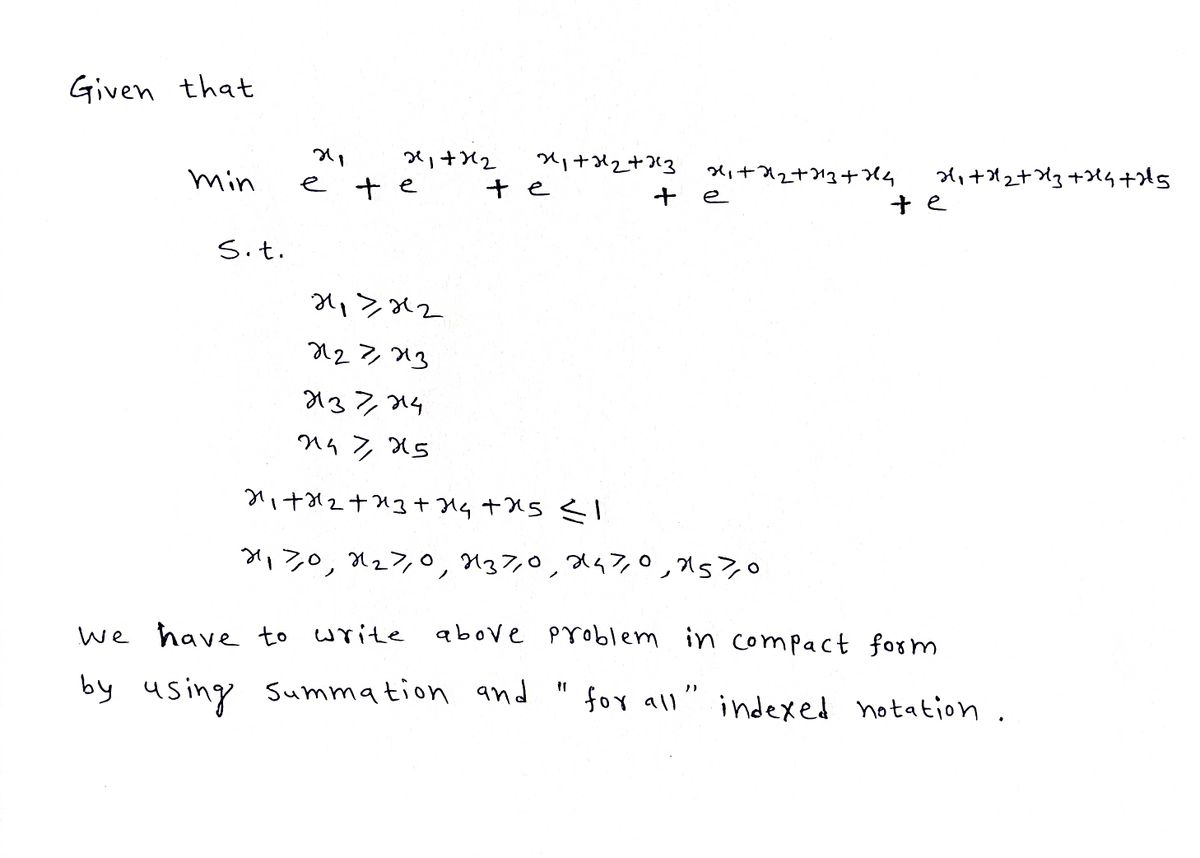 Given that
min e^{x₁} + e^{x₁+x₂} + e^{x₁+x₂+x₃} + e^{x₁+x₂+x₃+x₄} + e^{x₁+x₂+x₃+x₄+x₅}
S.t.
x₁ ⩾ x₂
x₂ ⩾ x₃
x₃ ⩾ x₄
x₄ ⩾ x₅
x₁+x₂+x₃+x₄+x₅ ≤ 1
x₁⩾0, x₂⩾0, x₃⩾0, x₄⩾0, x₅⩾0
we have to write above problem in compact form
by using summation and "for all" indexed notation.